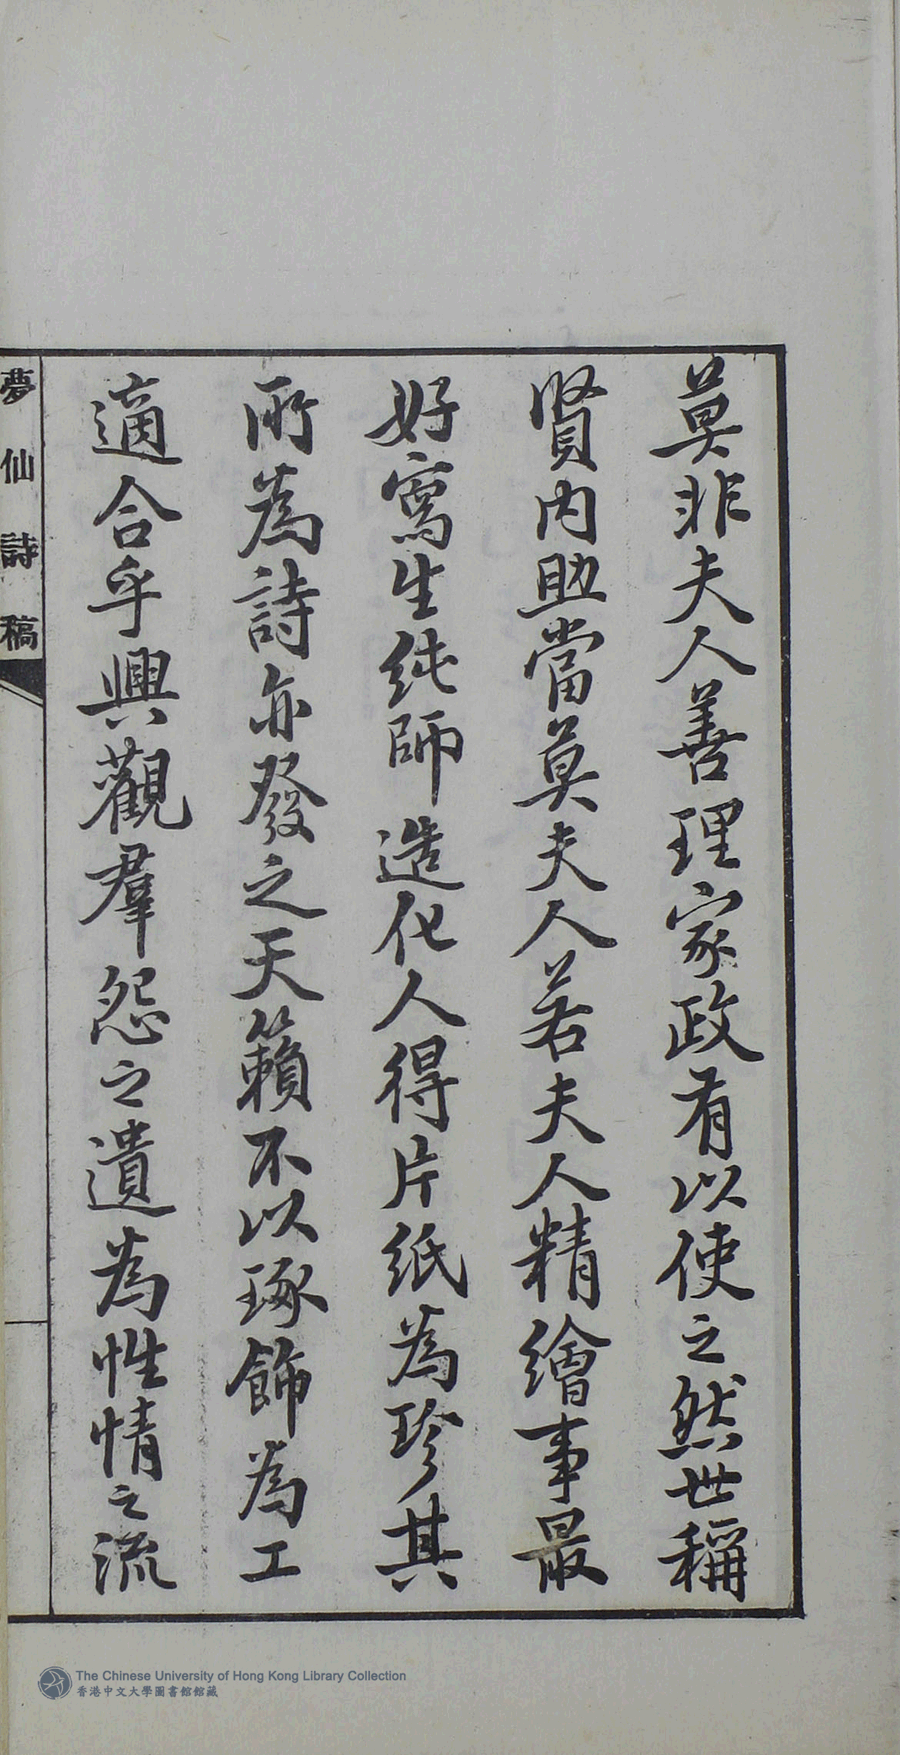 莫非夫人善理家政有以使之然世稱
賢内助當莫夫人若夫人精繪事最
好寫生純師造化人得片紙為珍其
所為詩亦發之天籟不以琢飾為工
適合乎興觀羣怨之遺為性情之流
夢仙詩稿
The Chinese University of Hong Kong Library Collection
香港中文大學圖書館館藏